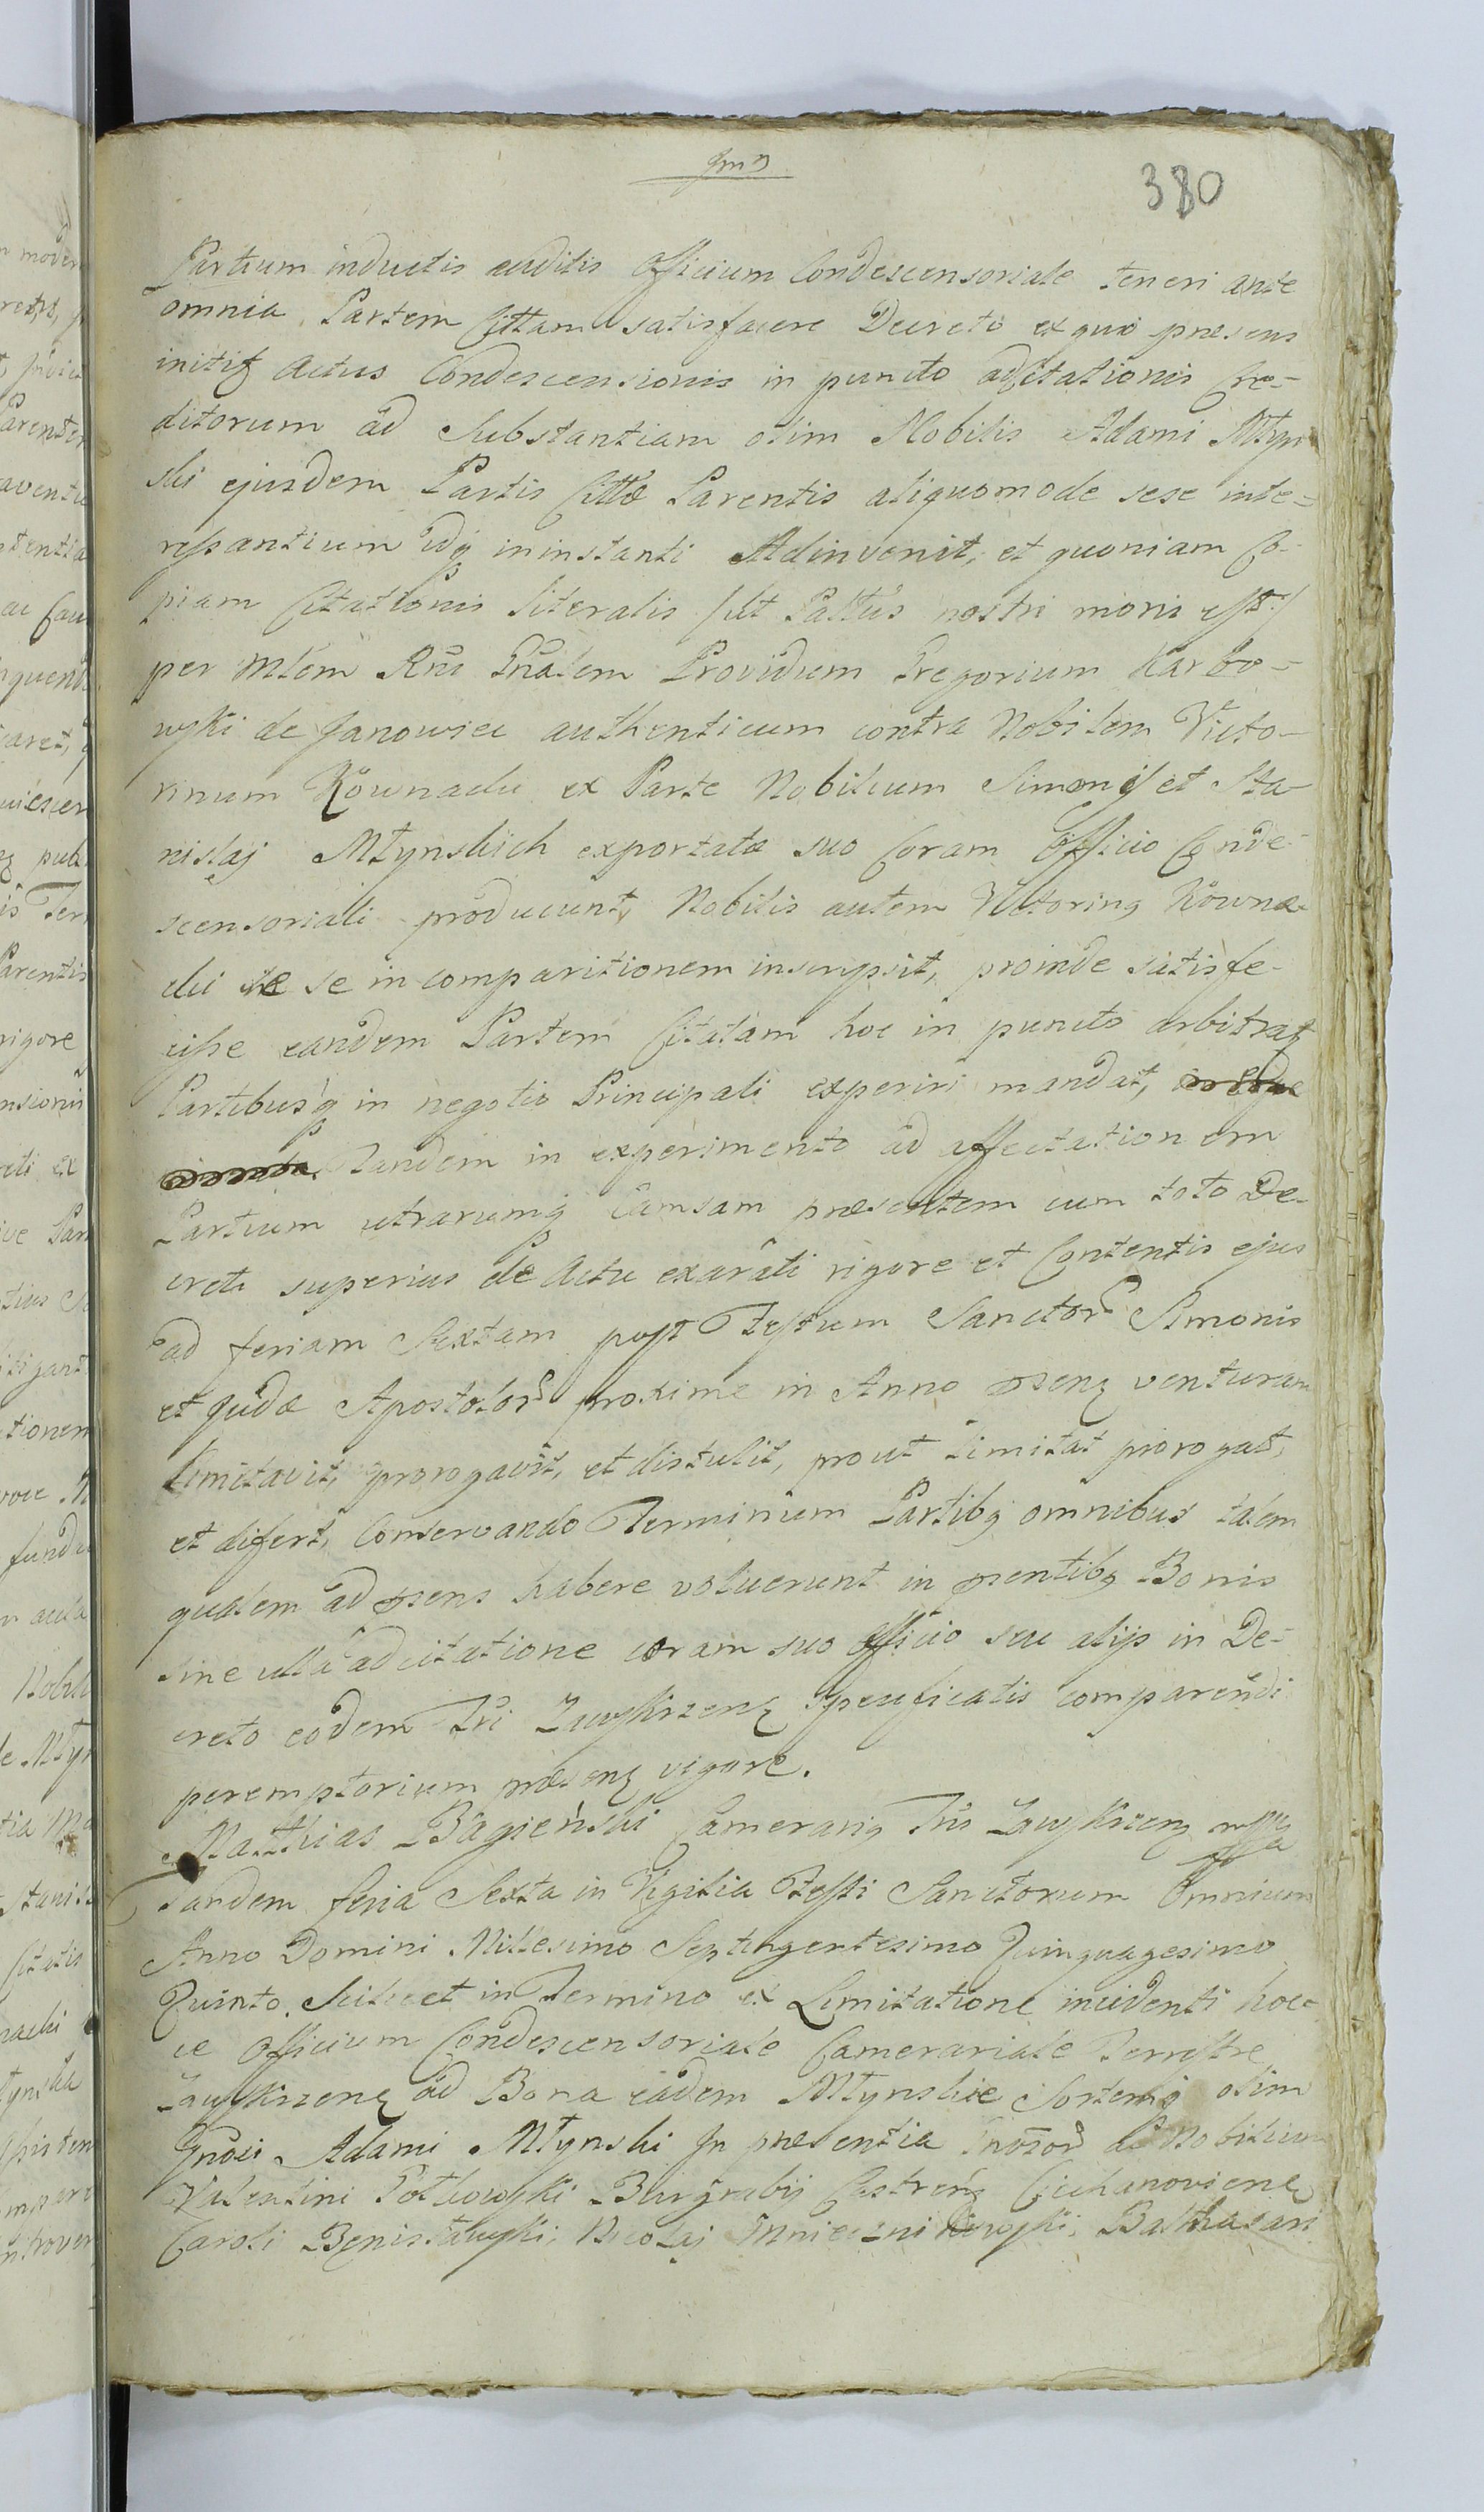 380
Partium inductis auditis Officium Condescensoriale teneri ante
omnia Partem Cittam satisfacere Decreto ex quo præsens
initig Actus Condescensionis in puncto adcitationis Cre-
ditorum ad Substantiam olim Nobilis Adami Młyn
ski ejusdem Partis Cittæ Parentis aliquomode sese inte-
ressantium idq in instanti Adinvenit, et quoniam Co-
piam Citationis Literalis /ut Pattus nostri moris est/
per Mlem Rni Gnalem Providum Gregorium Karbo-
wski de Janowiec authenticum contra Nobilem Victo-
rinum Rownacki ex Parte Nobilium Simonis et Sta-
nislaj Młynskich exportatæ suo Coram Officio Conde-
scensoriali producunt, Nobilis autem Victoring Rowna-
cki se in comparitionem inscripsit, proinde satisfe-
cisse eandem Partem Citatam hoc in puncto arbitratq
Partibusq in negotio Principali experiri mandat,
Tandem in experimento ad affectationem
Partium utrarumq Causam præsentem cum toto De-
creti superius de Actu exarati rigore et Contentis ejus
ad feriam Sextam post Festum Sanctor Simonis
et Judæ Apostolor proxime in Anno psenq venturam
limitavit, prorogavit, et distulit, prout limitat prorogat,
et difert, Conservando Terminum Partibq omnibus talem
qualem ad psens habere voluerunt in psentibq Bonis
sine ulla adcitatione coram suo Officio seu alijs in De-
creto eodem Tri Zawskrzenq specificatis comparendi
peremptorium præsenq vigore.
Matthias Bagieński Camerariq Tris Zawskrzenq mpp
Tandem feria Sexta in Vigilia Festi Sanctorum Omnium
Anno Domini Millesimo Septingentesimo Quinquagesimo
Quinto Scilicet in Termino ex Limitatione incidenti hoc-
ce Officium Condescensoriale Camerariale Terrestre
Zawskrzenq ad Bona eadem Młynskie Sortemq olim
Gnosi Adami Młynski In præsentia Gnosor & Nobilium
Valentini Potkowski Burgrabij Castrenq Ciechanoviensq
Caroli Benisławski, Nicolaj Balthasari